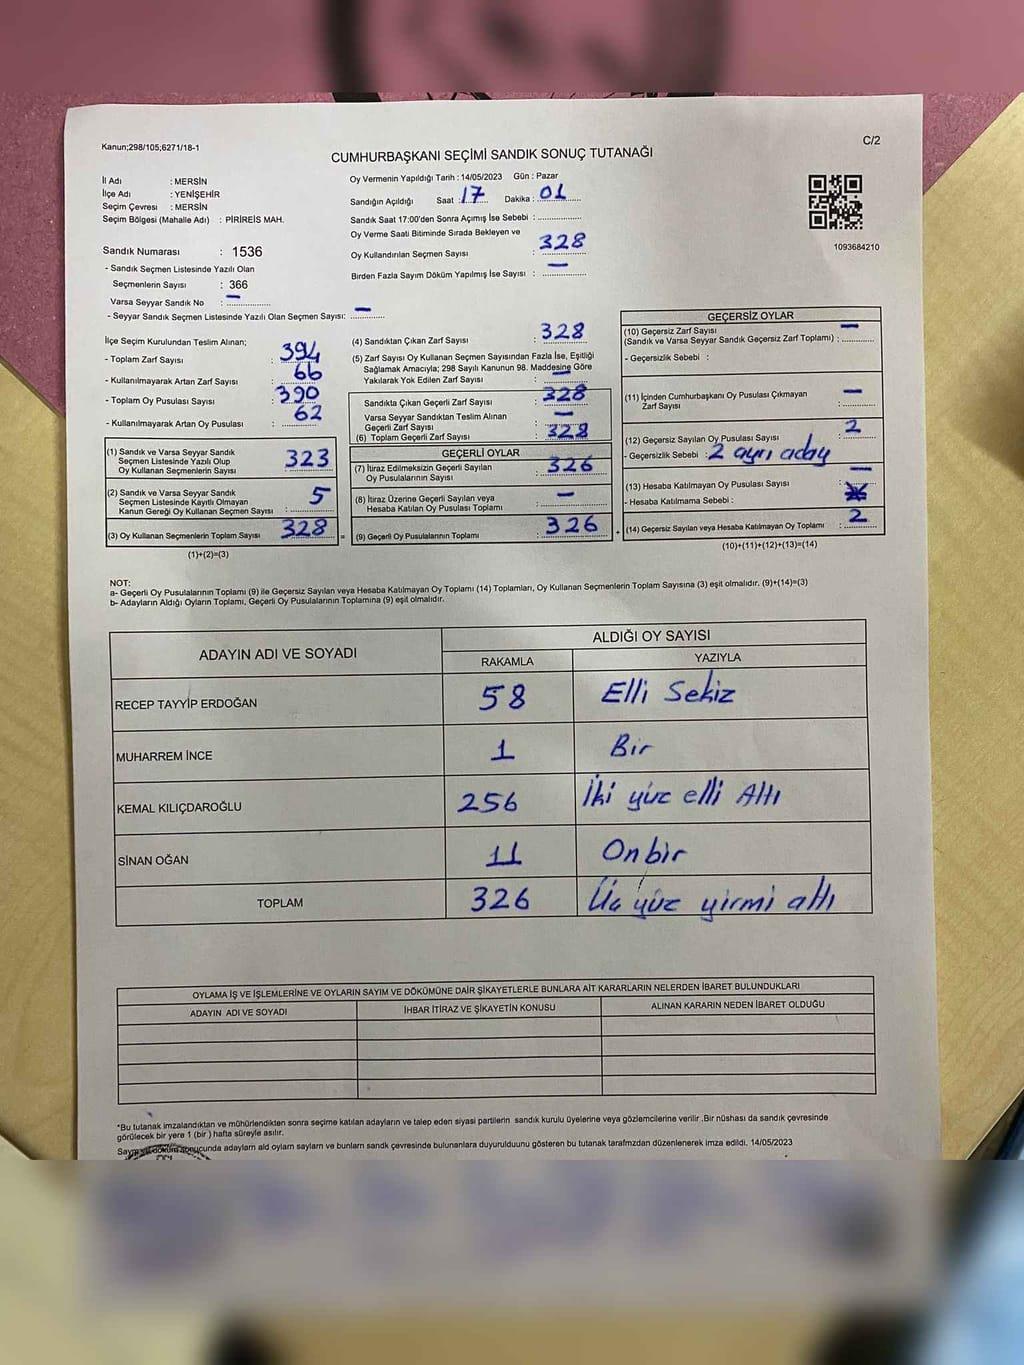 Kanun;298/105;6271/18-1
C/2
CUMHURBAŞKANI SEÇİMİ SANDIK SONUÇ TUTANAĞI
İl Adı : MERSİN
İlçe Adı : YENİŞEHİR
Seçim Çevresi : MERSİN
Seçim Bölgesi (Mahalle Adı) : PİRİREİS MAH.
Sandık Numarası : 1536
- Sandık Seçmen Listesinde Yazılı Olan
Seçmenlerin Sayısı : 366
Varsa Seyyar Sandık No : —
- Seyyar Sandık Seçmen Listesinde Yazılı Olan Seçmen Sayısı: —
Oy Vermenin Yapıldığı Tarih : 14/05/2023 Gün : Pazar
Sandığın Açıldığı Saat : 17 Dakika : 01
Sandık Saat 17:00'den Sonra Açımış İse Sebebi :
Oy Verme Saati Bitiminde Sırada Bekleyen ve
Oy Kullandırılan Seçmen Sayısı : 328
Birden Fazla Sayım Döküm Yapılmış İse Sayısı : —
1093684210
İlçe Seçim Kurulundan Teslim Alınan;
- Toplam Zarf Sayısı : 394
- Kullanılmayarak Artan Zarf Sayısı : 66
- Toplam Oy Pusulası Sayısı : 390
- Kullanılmayarak Artan Oy Pusulası : 62
(1) Sandık ve Varsa Seyyar Sandık
Seçmen Listesinde Yazılı Olup
Oy Kullanan Seçmenlerin Sayısı : 323
(2) Sandık ve Varsa Seyyar Sandık
Seçmen Listesinde Kayıtlı Olmayan
Kanun Gereği Oy Kullanan Seçmen Sayısı : 5
(3) Oy Kullanan Seçmenlerin Toplam Sayısı : 328
(1)+(2)=(3)
(4) Sandıktan Çıkan Zarf Sayısı : 328
(5) Zarf Sayısı Oy Kullanan Seçmen Sayısından Fazla İse, Eşitliği
Sağlamak Amacıyla; 298 Sayılı Kanunun 98. Maddesine Göre
Yakılarak Yok Edilen Zarf Sayısı : —
Sandıkta Çıkan Geçerli Zarf Sayısı : 328
Varsa Seyyar Sandıktan Teslim Alınan
Geçerli Zarf Sayısı : —
(6) Toplam Geçerli Zarf Sayısı : 328
GEÇERLİ OYLAR
(7) İtiraz Edilmeksizin Geçerli Sayılan
Oy Pusulalarının Sayısı : 326
(8) İtiraz Üzerine Geçerli Sayılan veya
Hesaba Katılan Oy Pusulası Toplamı : —
(9) Geçerli Oy Pusulalarının Toplamı : 326
GEÇERSİZ OYLAR
(10) Geçersiz Zarf Sayısı
(Sandık ve Varsa Seyyar Sandık Geçersiz Zarf Toplamı) : —
- Geçersizlik Sebebi :
(11) İçinden Cumhurbaşkanı Oy Pusulası Çıkmayan
Zarf Sayısı : —
(12) Geçersiz Sayılan Oy Pusulası Sayısı : 2
- Geçersizlik Sebebi : 2 ayrı aday
(13) Hesaba Katılmayan Oy Pusulası Sayısı : —
- Hesaba Katılmama Sebebi :
(14) Geçersiz Sayılan veya Hesaba Katılmayan Oy Toplamı : 2
(10)+(11)+(12)+(13)=(14)
NOT:
a- Geçerli Oy Pusulalarının Toplamı (9) ile Geçersiz Sayılan veya Hesaba Katılmayan Oy Toplamı (14) Toplamları, Oy Kullanan Seçmenlerin Toplam Sayısına (3) eşit olmalıdır. (9)+(14)=(3)
b- Adayların Aldığı Oyların Toplamı, Geçerli Oy Pusulalarının Toplamına (9) eşit olmalıdır.
ADAYIN ADI VE SOYADI
ALDIĞI OY SAYISI
RAKAMLA YAZIYLA
RECEP TAYYİP ERDOĞAN 58 Elli Sekiz
MUHARREM İNCE 1 Bir
KEMAL KILIÇDAROĞLU 256 İki yüz elli Altı
SİNAN OĞAN 11 Onbir
TOPLAM 326 Üç yüz yirmi altı
OYLAMA İŞ VE İŞLEMLERİNE VE OYLARIN SAYIM VE DÖKÜMÜNE DAİR ŞİKAYETLERLE BUNLARA AİT KARARLARIN NELERDEN İBARET BULUNDUKLARI
ADAYIN ADI VE SOYADI İHBAR İTİRAZ VE ŞİKAYETİN KONUSU ALINAN KARARIN NEDEN İBARET OLDUĞU
*Bu tutanak imzalandıktan ve mühürlendikten sonra seçime katılan adayların ve talep eden siyasi partilerin sandık kurulu üyelerine veya gözlemcilerine verilir .Bir nüshası da sandık çevresinde
görülecek bir yere 1 (bir ) hafta süreyle asılır.
adayların ald oyların sayların ve bunların sandk çevresinde bulunanlara duyurulduunu gösteren bu tutanak tarafmzdan düzenlenerek imza edildi. 14/05/2023